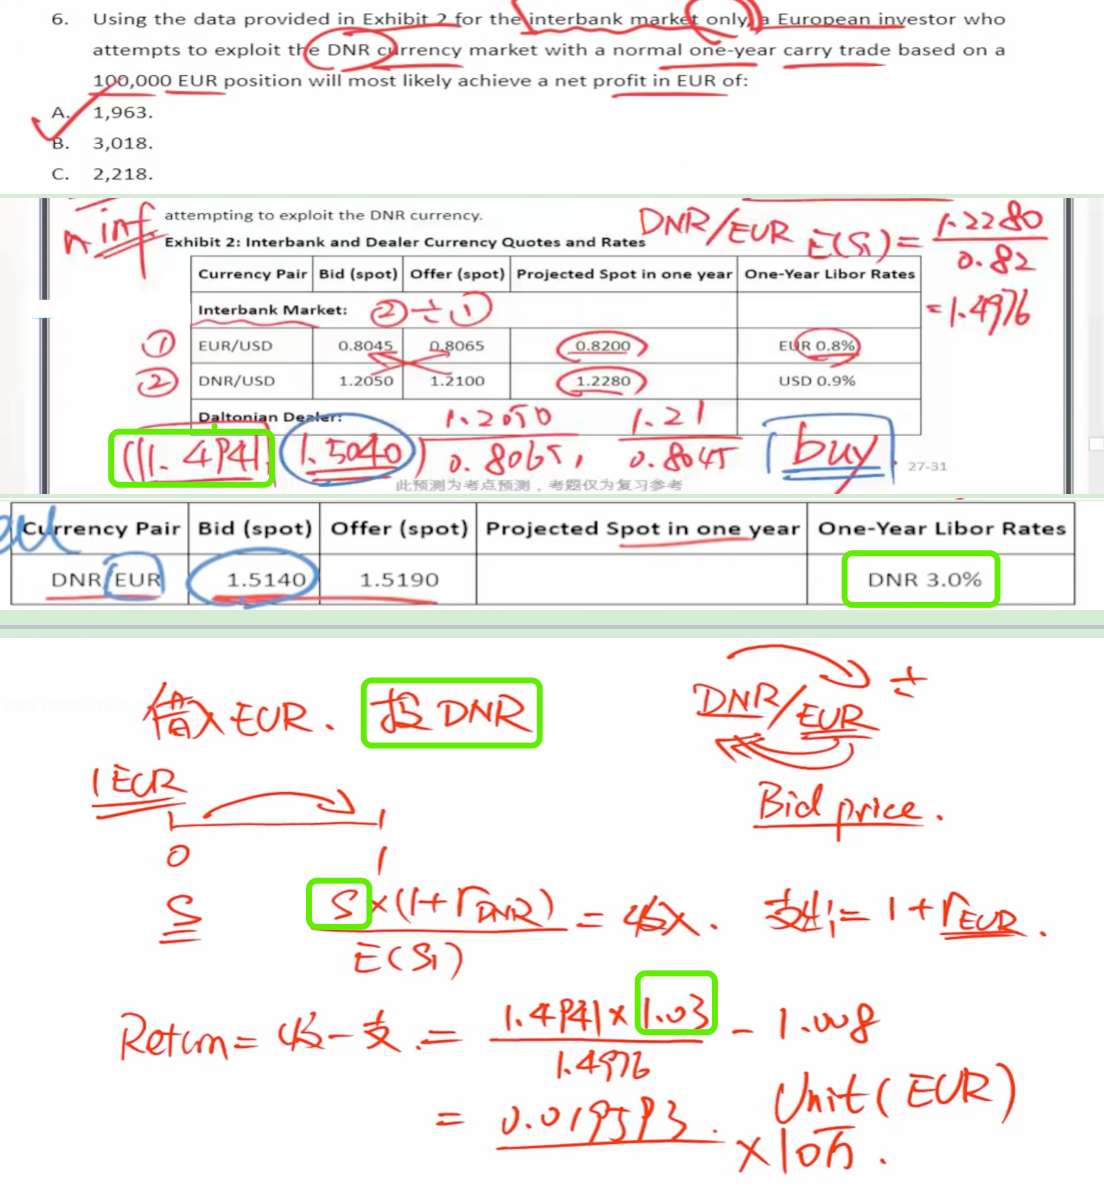 6. Using the data provided in Exhibit 2 for the interbank market only, a European investor who
attempts to exploit the DNR currency market with a normal one-year carry trade based on a
100,000 EUR position will most likely achieve a net profit in EUR of:
A. 1,963.
B. 3,018.
C. 2,218.
attempting to exploit the DNR currency.
DNR/EUR E(S₁)= 1.2280 / 0.82
= 1.4976
inf
Exhibit 2: Interbank and Dealer Currency Quotes and Rates
Currency Pair Bid (spot) Offer (spot) Projected Spot in one year One-Year Libor Rates
Interbank Market: ②÷①
① EUR/USD 0.8045 0.8065 0.8200 EUR 0.8%
② DNR/USD 1.2050 1.2100 1.2280 USD 0.9%
Daltonian Dealer: 1.2050 / 0.8065, 1.21 / 0.8045
(1.4941 1.5040) buy
27-31
此预测为考点预测，考题仅为复习参考
Currency Pair Bid (spot) Offer (spot) Projected Spot in one year One-Year Libor Rates
DNR/EUR 1.5140 1.5190 DNR 3.0%
借入EUR. 投DNR
DNR/EUR ÷
Bid price.
1 EUR
0 1
S S×(1+rDNR) / E(S₁) = 收入. 支出= 1+rEUR.
Return= 收-支.= 1.4941×1.03 / 1.4976 - 1.008
= 0.019593. Unit(EUR)
×10万.